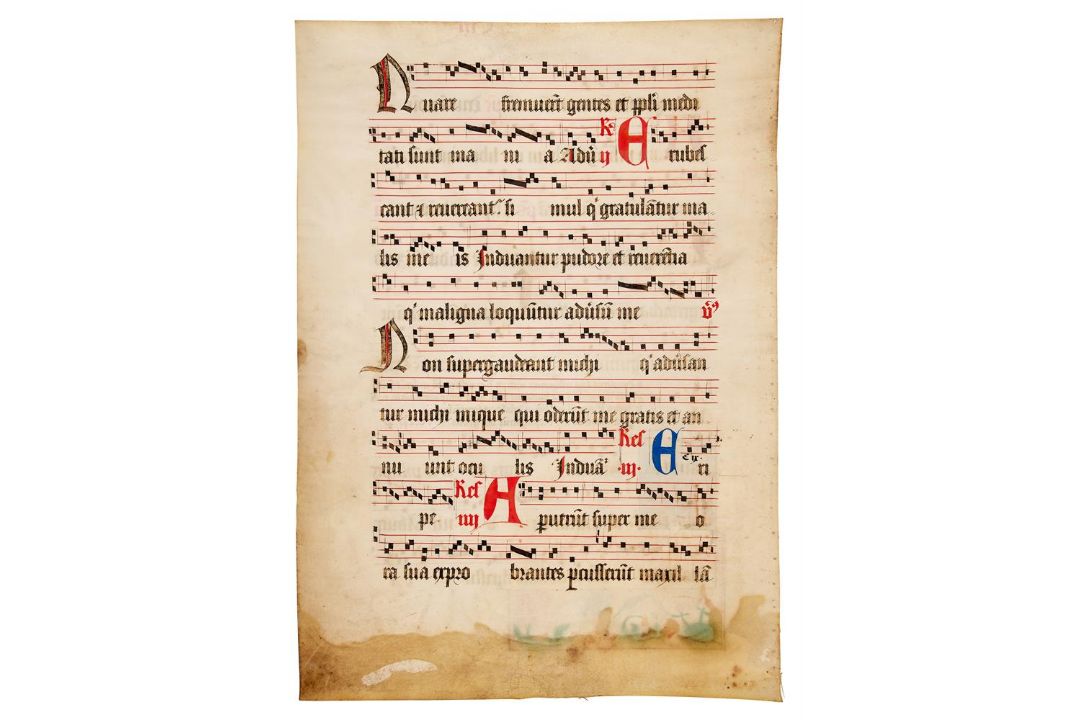 Quare fremuer̄t gentes et ppl̄i medi
tati sunt ina ni a Adū R̄ ij Erubes
cant ⁊ reuereant᷑ si mul q' gratulātur ma
lis me is Induantur pudore et reuerētia
q' maligna loquūtur adūsū me v̄9
Non supergaudeant michi q' adūsan
tur michi inique qui oderūt me gratis et an
nu unt ocu lis Induā᷑ Res iij Eri
pe Res iiij Aperuer̄t super me o
ra sua expro brantes pcusserūt maxil lā